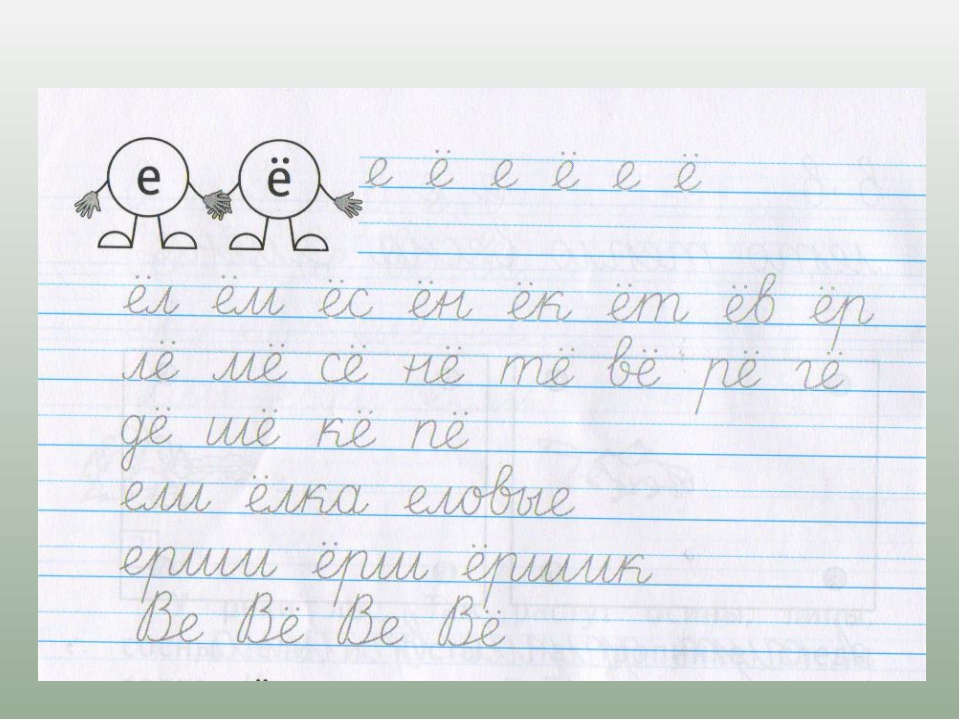 е ё
е ё е ё е ё
ёл ём ёс ён ёк ёт ёв ёр
лё мё сё нё тё вё рё гё
дё шё кё пё
ели ёлка еловые
ерши ёрш ёршик
Ве Вё Ве Вё